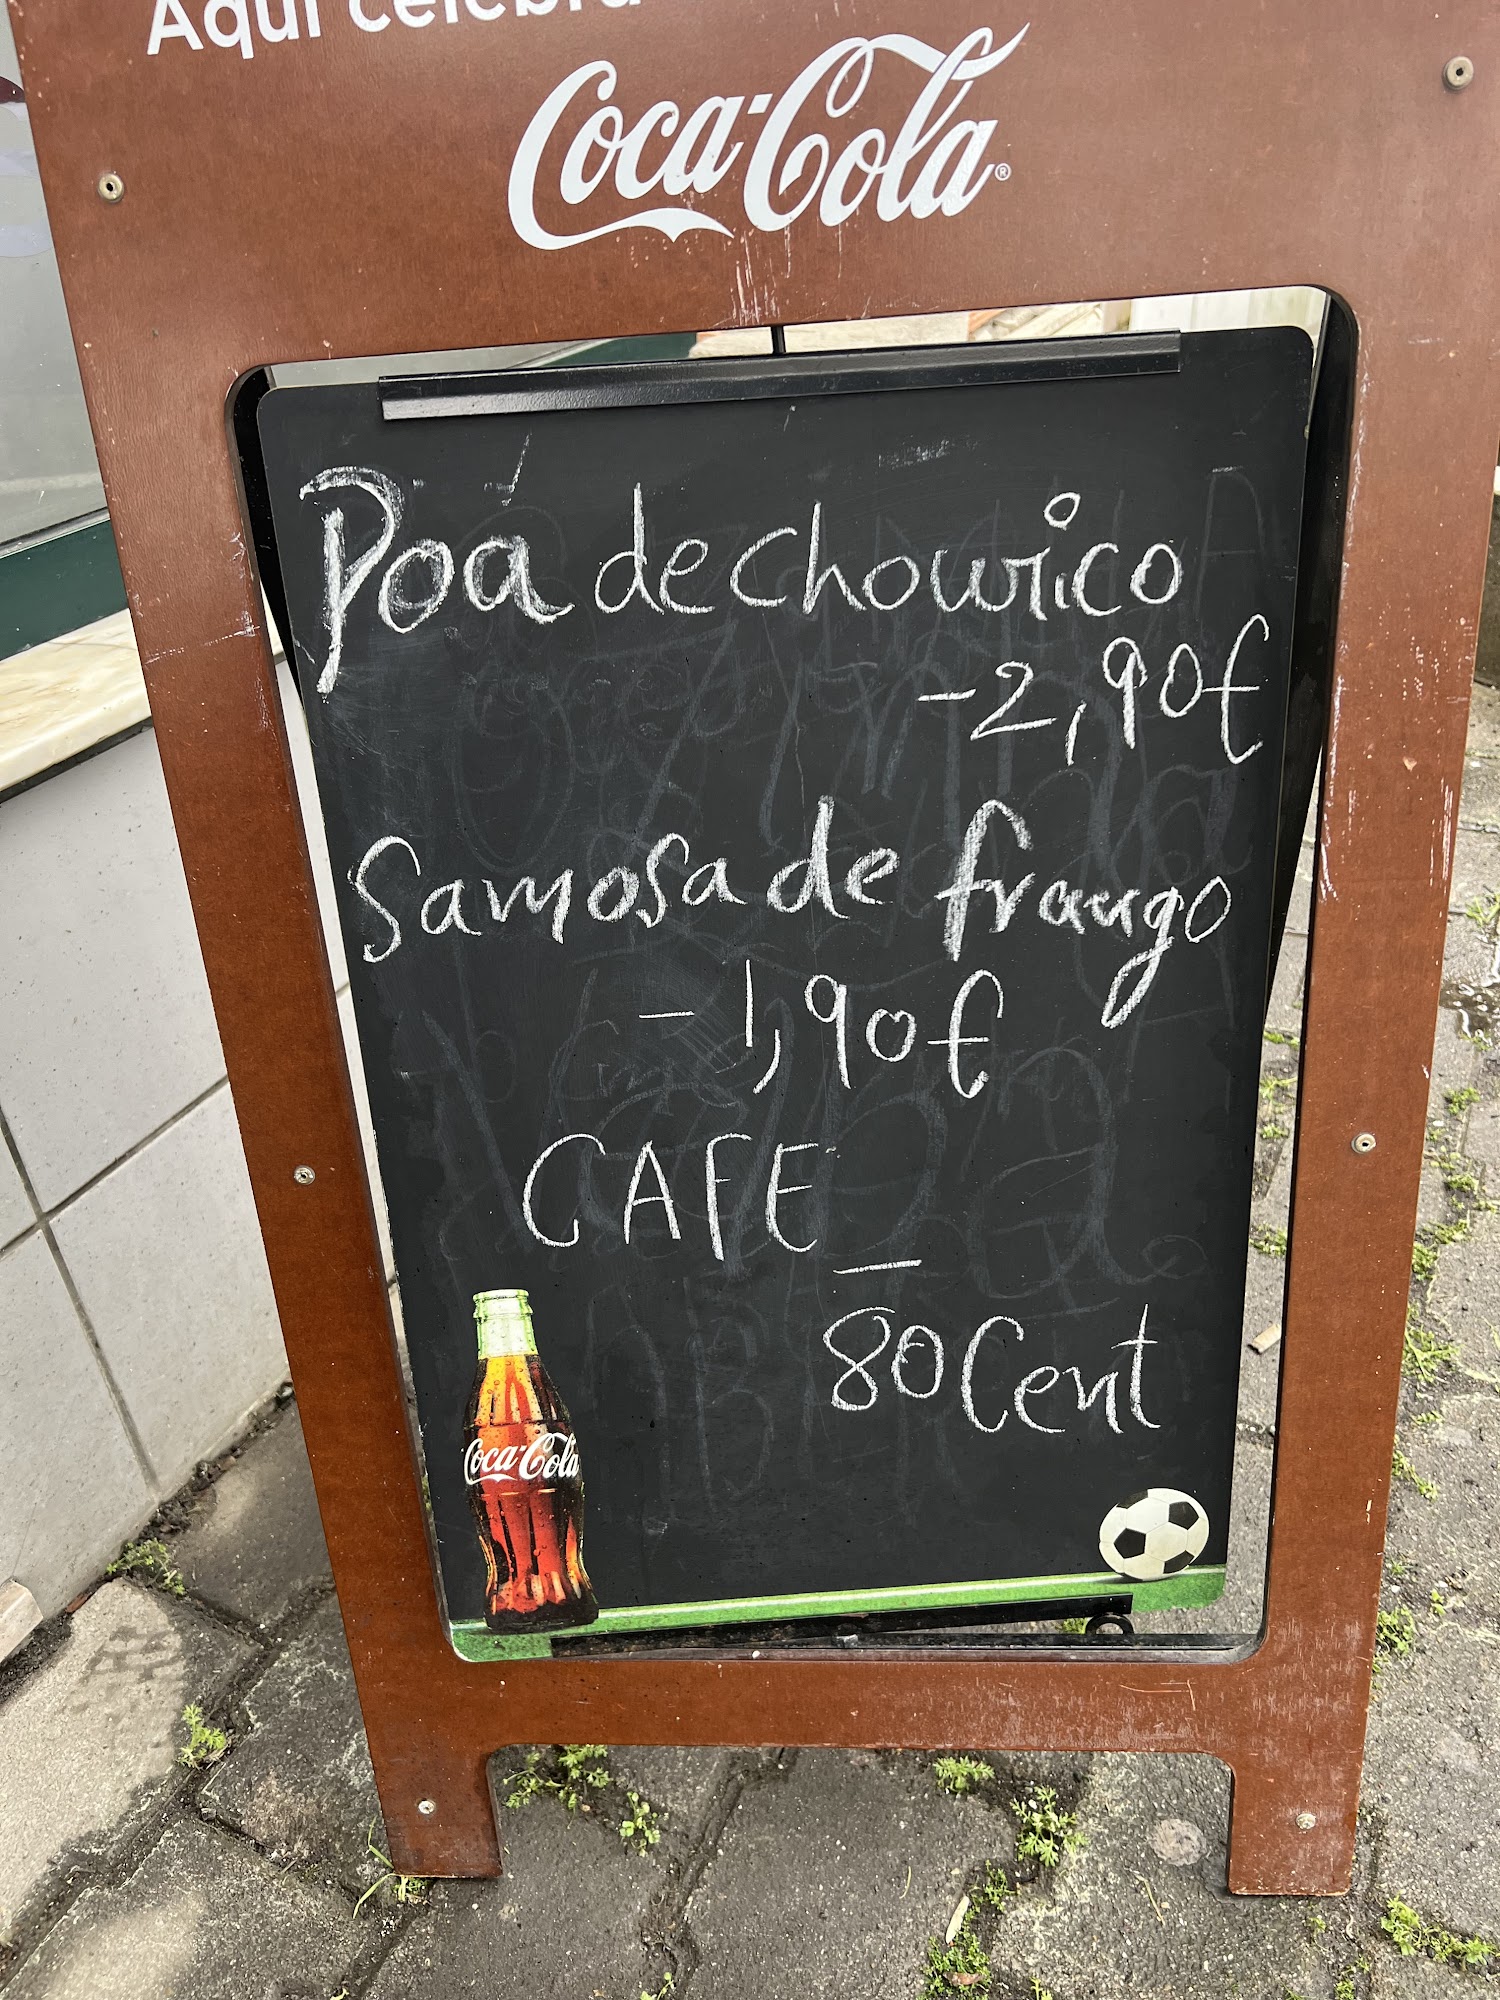 Aqui celebra
Coca-Cola®
Poá de chourico
- 2,90€
Samosa de fraugo
- 1,90€
CAFE
—
80 Cent
Coca-Cola